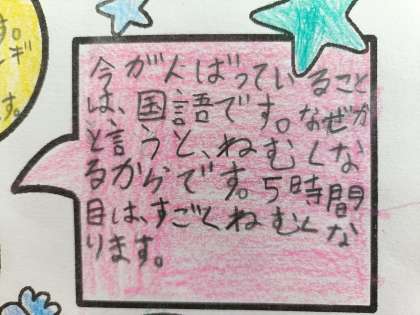 す。
ぎ
す。
今がんばっていること
は、国語です。なぜか
と言うと、ねむくな
るからです。5時間
目は、すごくねむくな
ります。